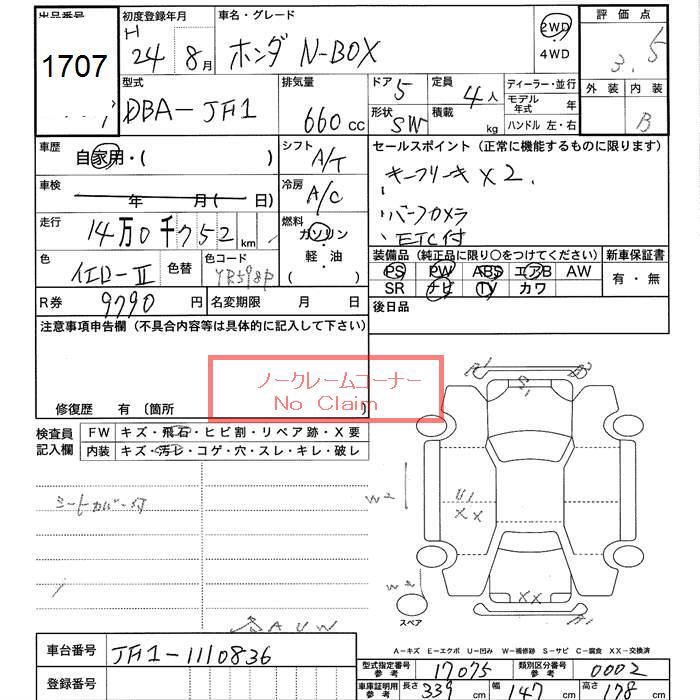 出品番号 初度登録年月 車名・グレード 2WD 4WD 評価点
1707 H 24年 8月 ホンダ N-BOX 3.5
型式 排気量 ドア 5 定員 4人 ディーラー・並行 外装 内装
DBA-JF1 660cc 形状 SW 積載 kg モデル年式 年 B
ハンドル 左・右
車歴 自家用・( ) シフト A/T セールスポイント (正常に機能するものに限ります)
車検 年 月( 日) 冷房 A/C キーフリーキ×2.
走行 14万0千752km 燃料 ガソリン・軽油・( ) バーフカメラ
ETC付
色 イエローII 色替 色コード YR598P 装備品 (純正品に限り○をつけてください) 新車保証書
PS PW ABS エアB AW 有・無
R券 9790円 名変期限 月 日 SR ナビ TV カワ
後日品
注意事項申告欄 (不具合内容等は具体的に記入して下さい)
ノークレームコーナー
No Claim
修復歴 有 (箇所 )
検査員記入欄 FW キズ・飛石・ヒビ割・リペア跡・X要
内装 キズ・汚レ・コゲ・穴・スレ・キレ・破レ
シートカバー付
A1 S1 B2
W2 U1 XX
W2 XX
スペア
AUW
A-キズ E-エクボ U-凹み W-補修跡 S-サビ C-腐食 XX-交換済
車台番号 JF1-1110836
型式指定番号 参考 17075 類別区分番号 参考 0002
登録番号 車庫証明用 参考 長さ 339cm 幅 147cm 高さ 178cm